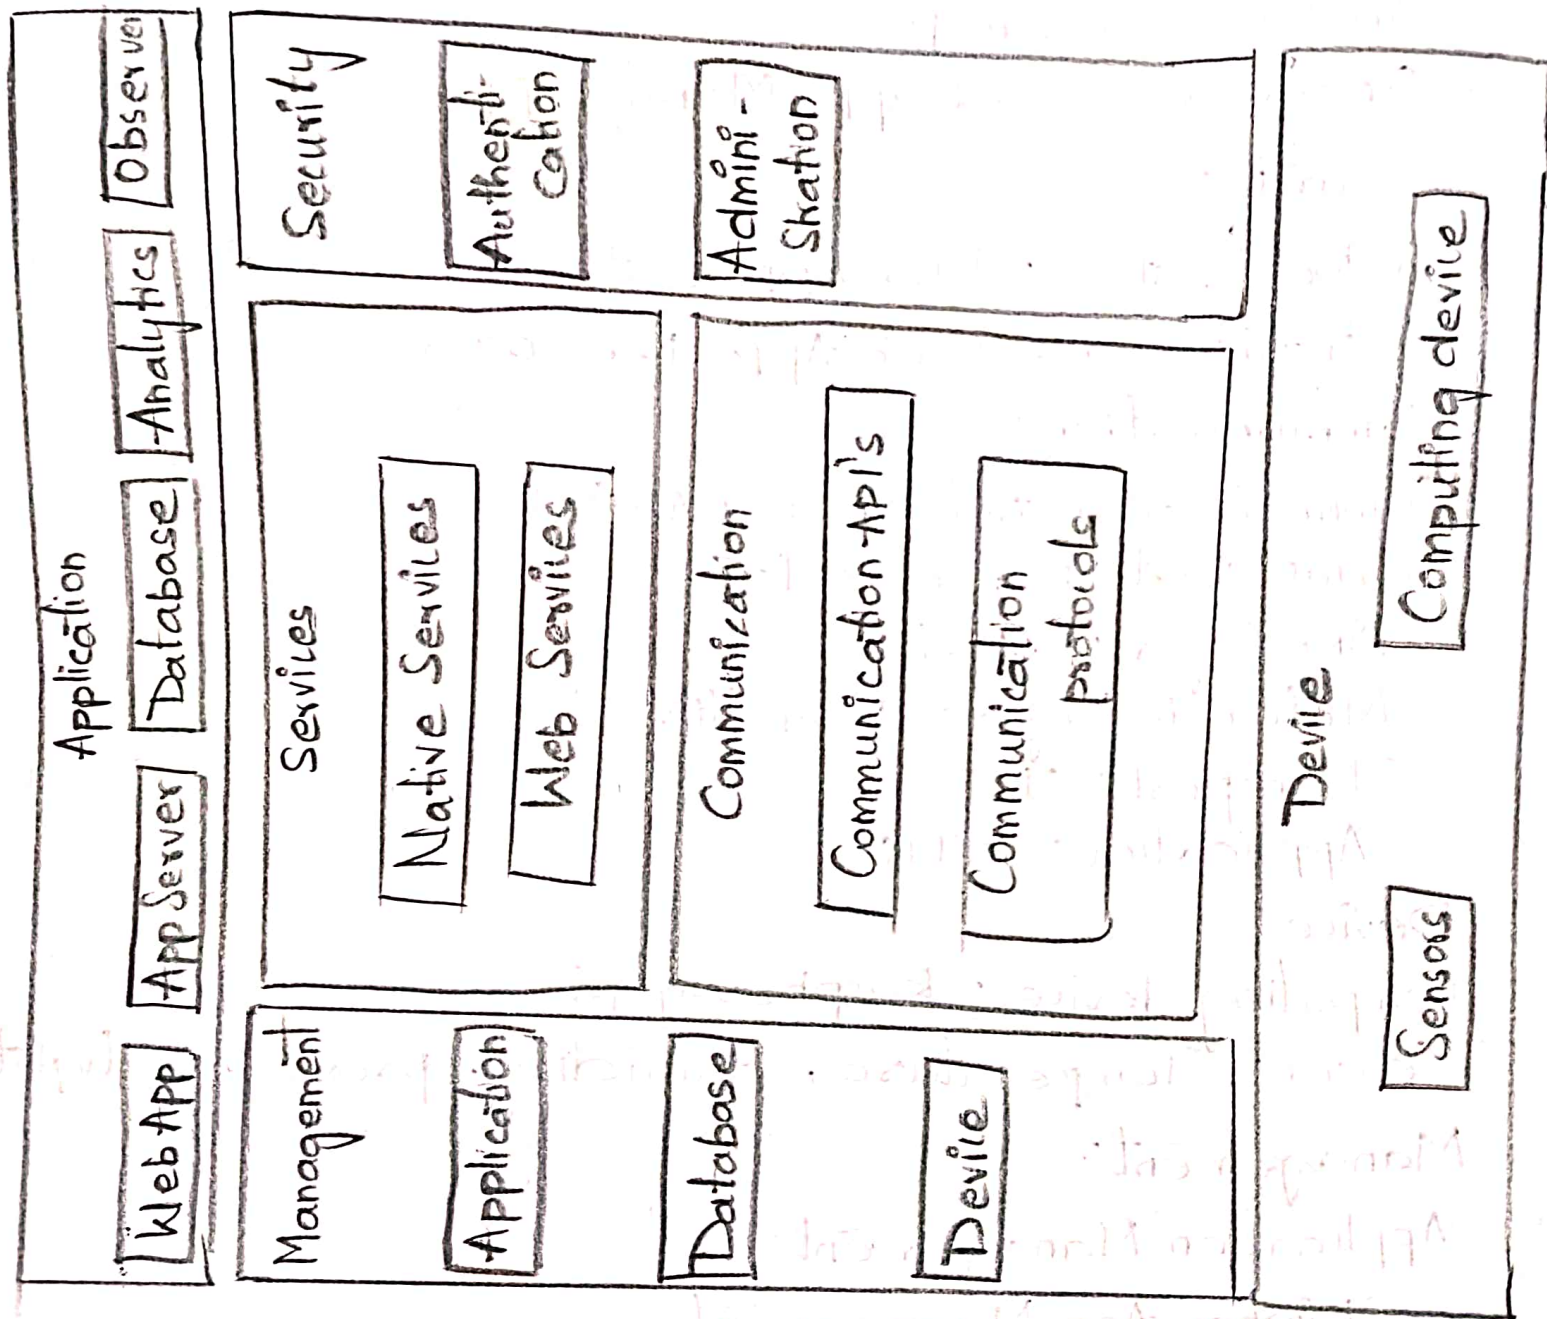 Application
Web App
App Server
Database
Analytics
Observer
Management
Application
Database
Device
Services
Native Services
Web Services
Communication
Communication API's
Communication
protocols
Security
Authenti-
cation
Admini-
stration
Device
Sensors
Computing device